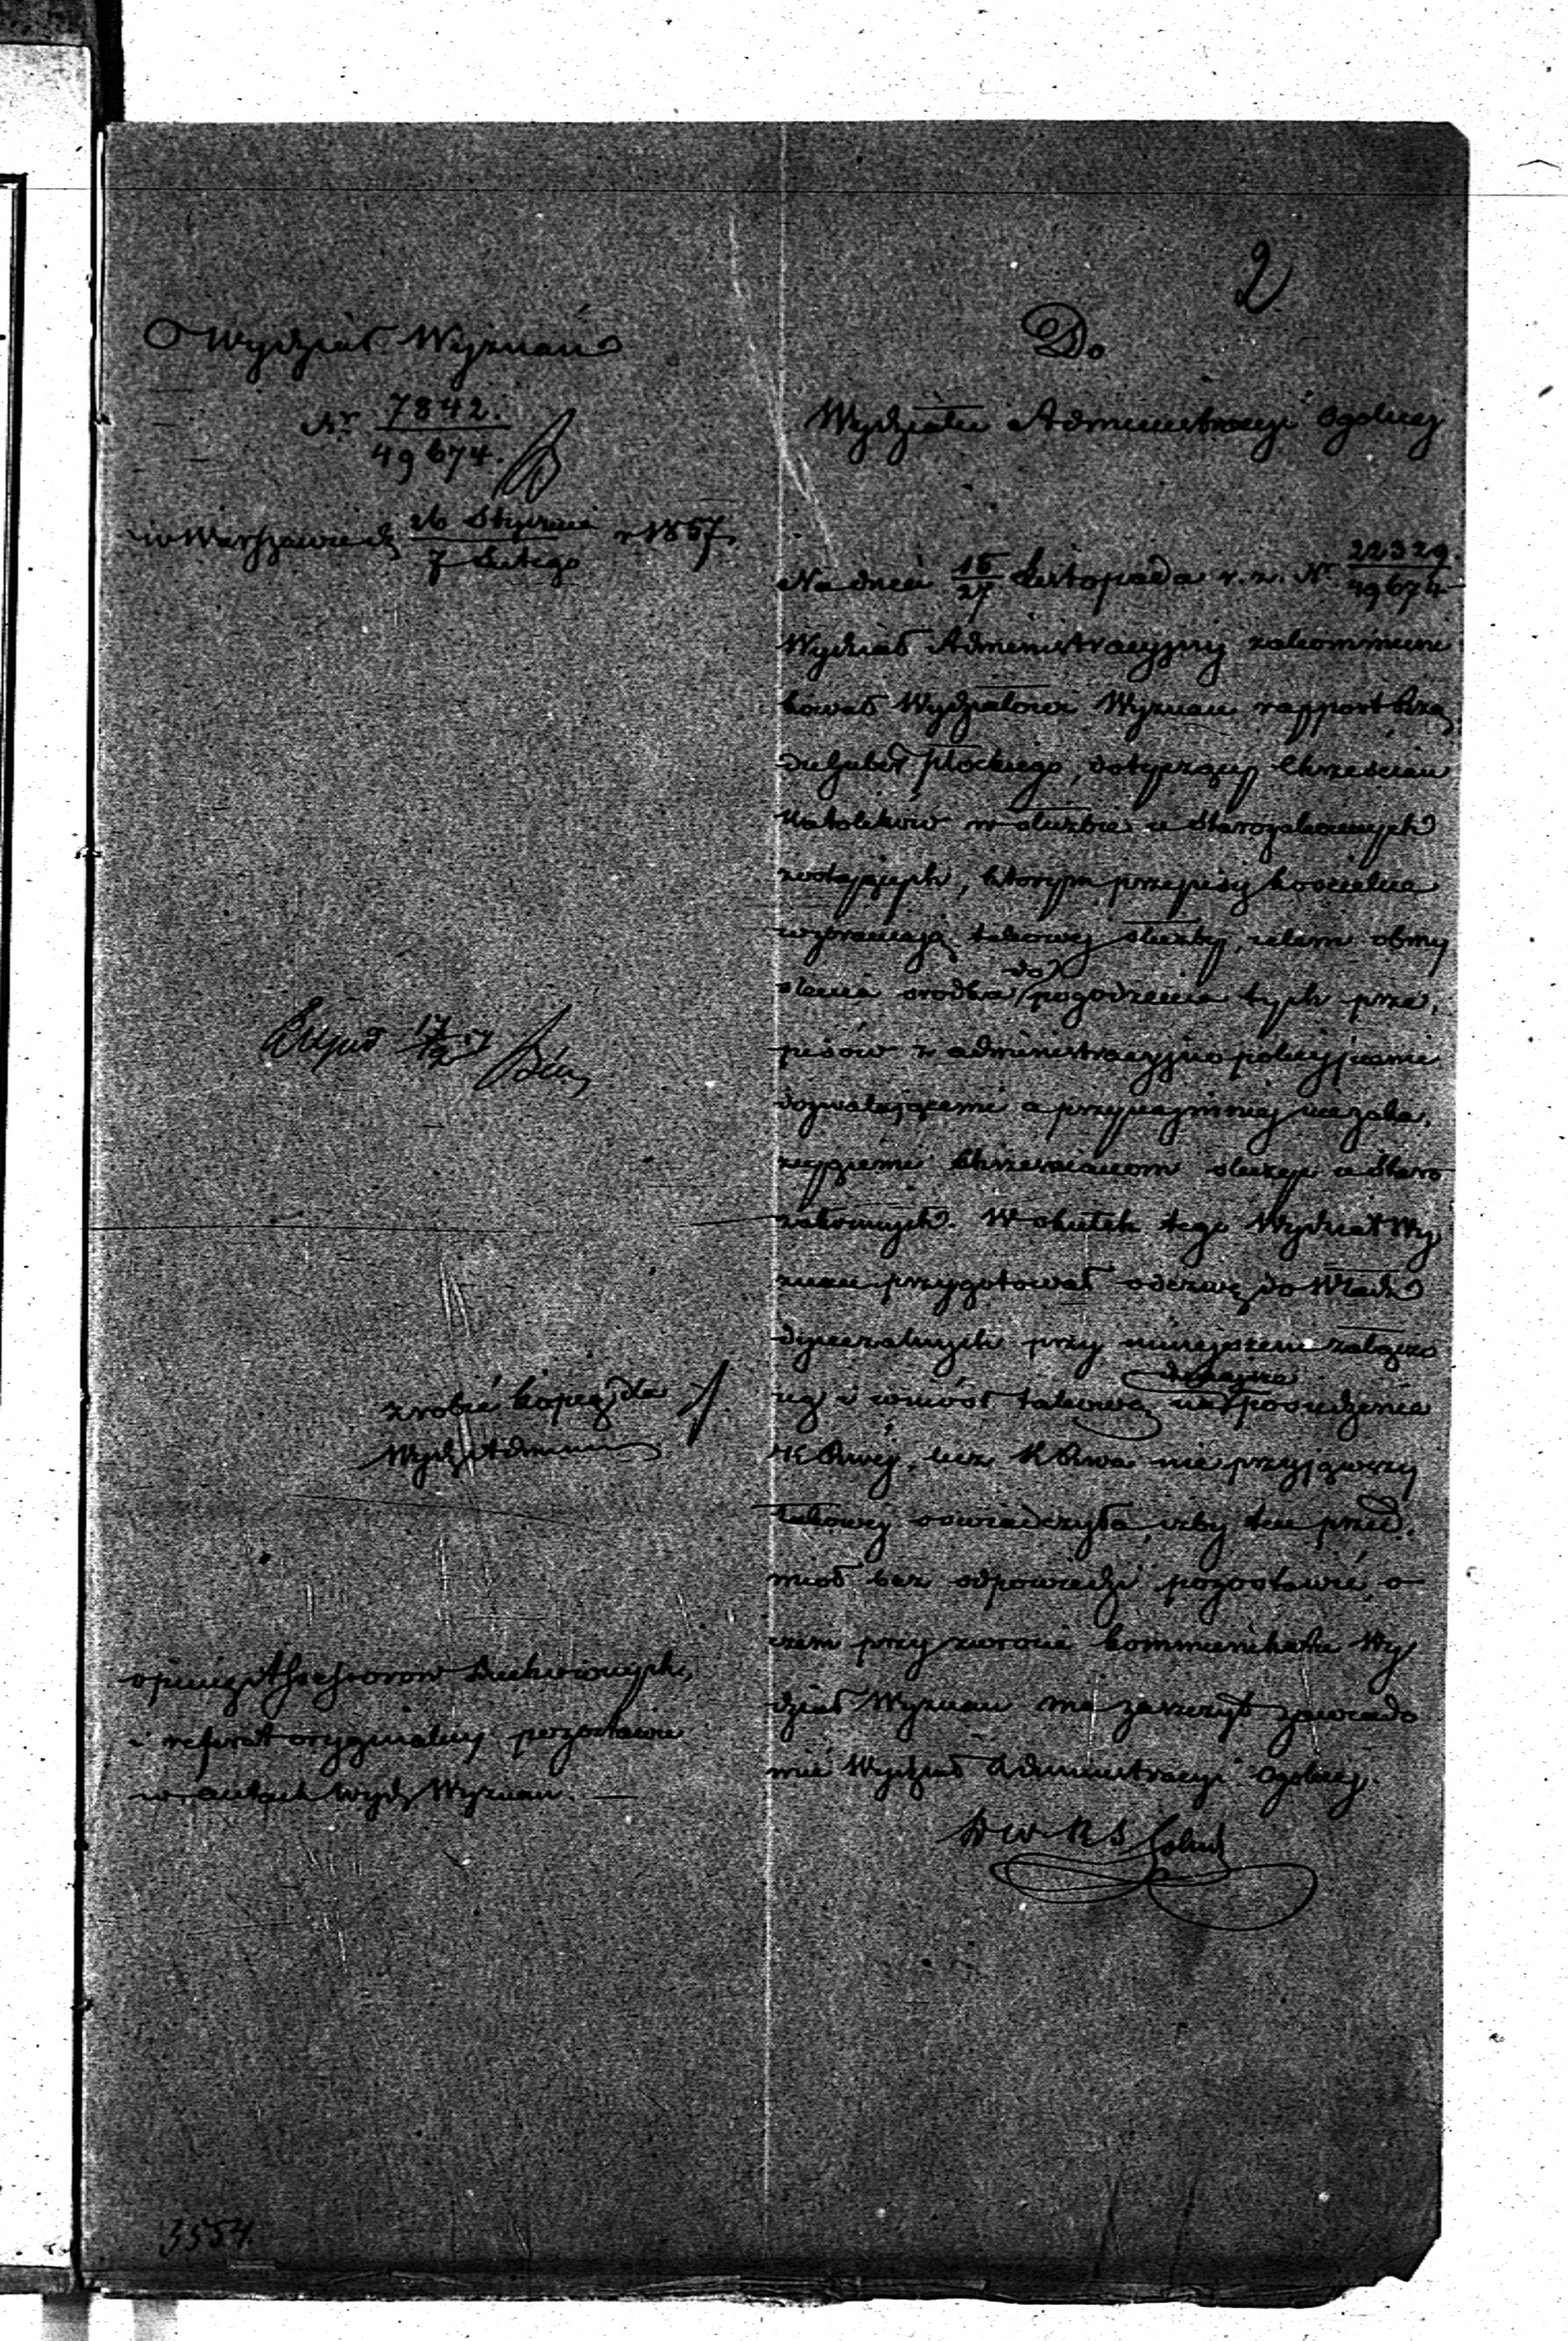 2
Wydział Wyznań
Nr 7842.
49674.
w Warszawie d. 26 Stycznia r 1857.
7 Lutego
Do
Wydziału Administracyi Ogolnej
Na dniu 15/27 Listopada r. z. Nr 22329.
49674
Wydział Administracyjny zakommuni
kował Wydziałowi Wyznań rapport Rzą
du Guber Płockiego, dotyczący Chrześcian
Katolików w służbie u Starozakonnych
zostających, którym przepisy kościelne
wzbraniają takowej służby, celem obmy
slenia srodka do pogodzenia tych prze,
pisów z administracyjno policyjnemi
dozwalającemi a przynajmniej nie zaka,
zującemi Chrześcianom służyć u Staro
zakonnych. W skutek tego Wydział Wy
znań przygotował odezwę do Władz
dyecezalnych przy niniejszem załączo
ną i wniósł takową na posiedzenie
K Rwej, lecz K Rwa nie przyjąwszy
takowej oswiadczyła, żeby ten przed,
miot bez odpowiedzi pozostawić, o
czem przy zwrocie kommunikatu Wy
dział Wyznań ma zaszczyt zawiado
mić Wydział Administracyi Ogolnej.
D w R S
zrobić kopię dla
Wydz Admin
opinię Assessorow Duchownych,
i referat oryginalny pozostawić
w aktach Wydz Wyznań.
3554.